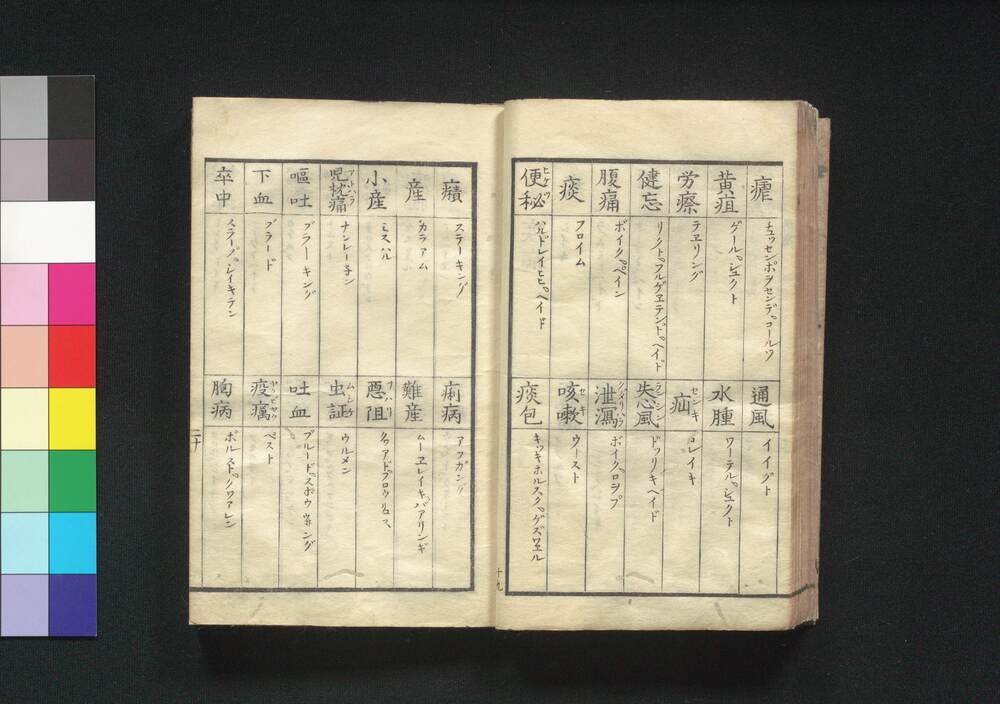 瘧
チュッセンポヲセンデ。コールツ
黄疸
ゲール。シュクト
労瘵
テヱリング
健忘
リクト。フルゲヱテンド。ヘイド
腹痛
ボイク。ペイン
痰
フロイム
便秘
ハルドレイヒヒ。ヘイド
通風
イイグト
水腫
ワーテル。シュクト
疝
センキ
コレイキ
失心風
ランシン
ドツリキヘイド
泄瀉
クダリハラ
ボイク。ロヲプ
咳嗽
セキ
ウースト
痰包
キッキホルスク。ゲズワヱル
十九
癪
ステーキング
産
カラアム
小産
ミスハル
児枕痛
アトハラ
ナンレー子ン
嘔吐
ブラーキング
下血
ブラード
卒中
スラーフ。シイキテン
痢病
アフガング
難産
ムーヱレイキ。バアリンギ
悪阻
ツハリ
虫証
ムシケ
ウルメン
吐血
ブルード。スポウウヰング
疫癘
ペスト
胸病
ボルスト。クワアレン
二十